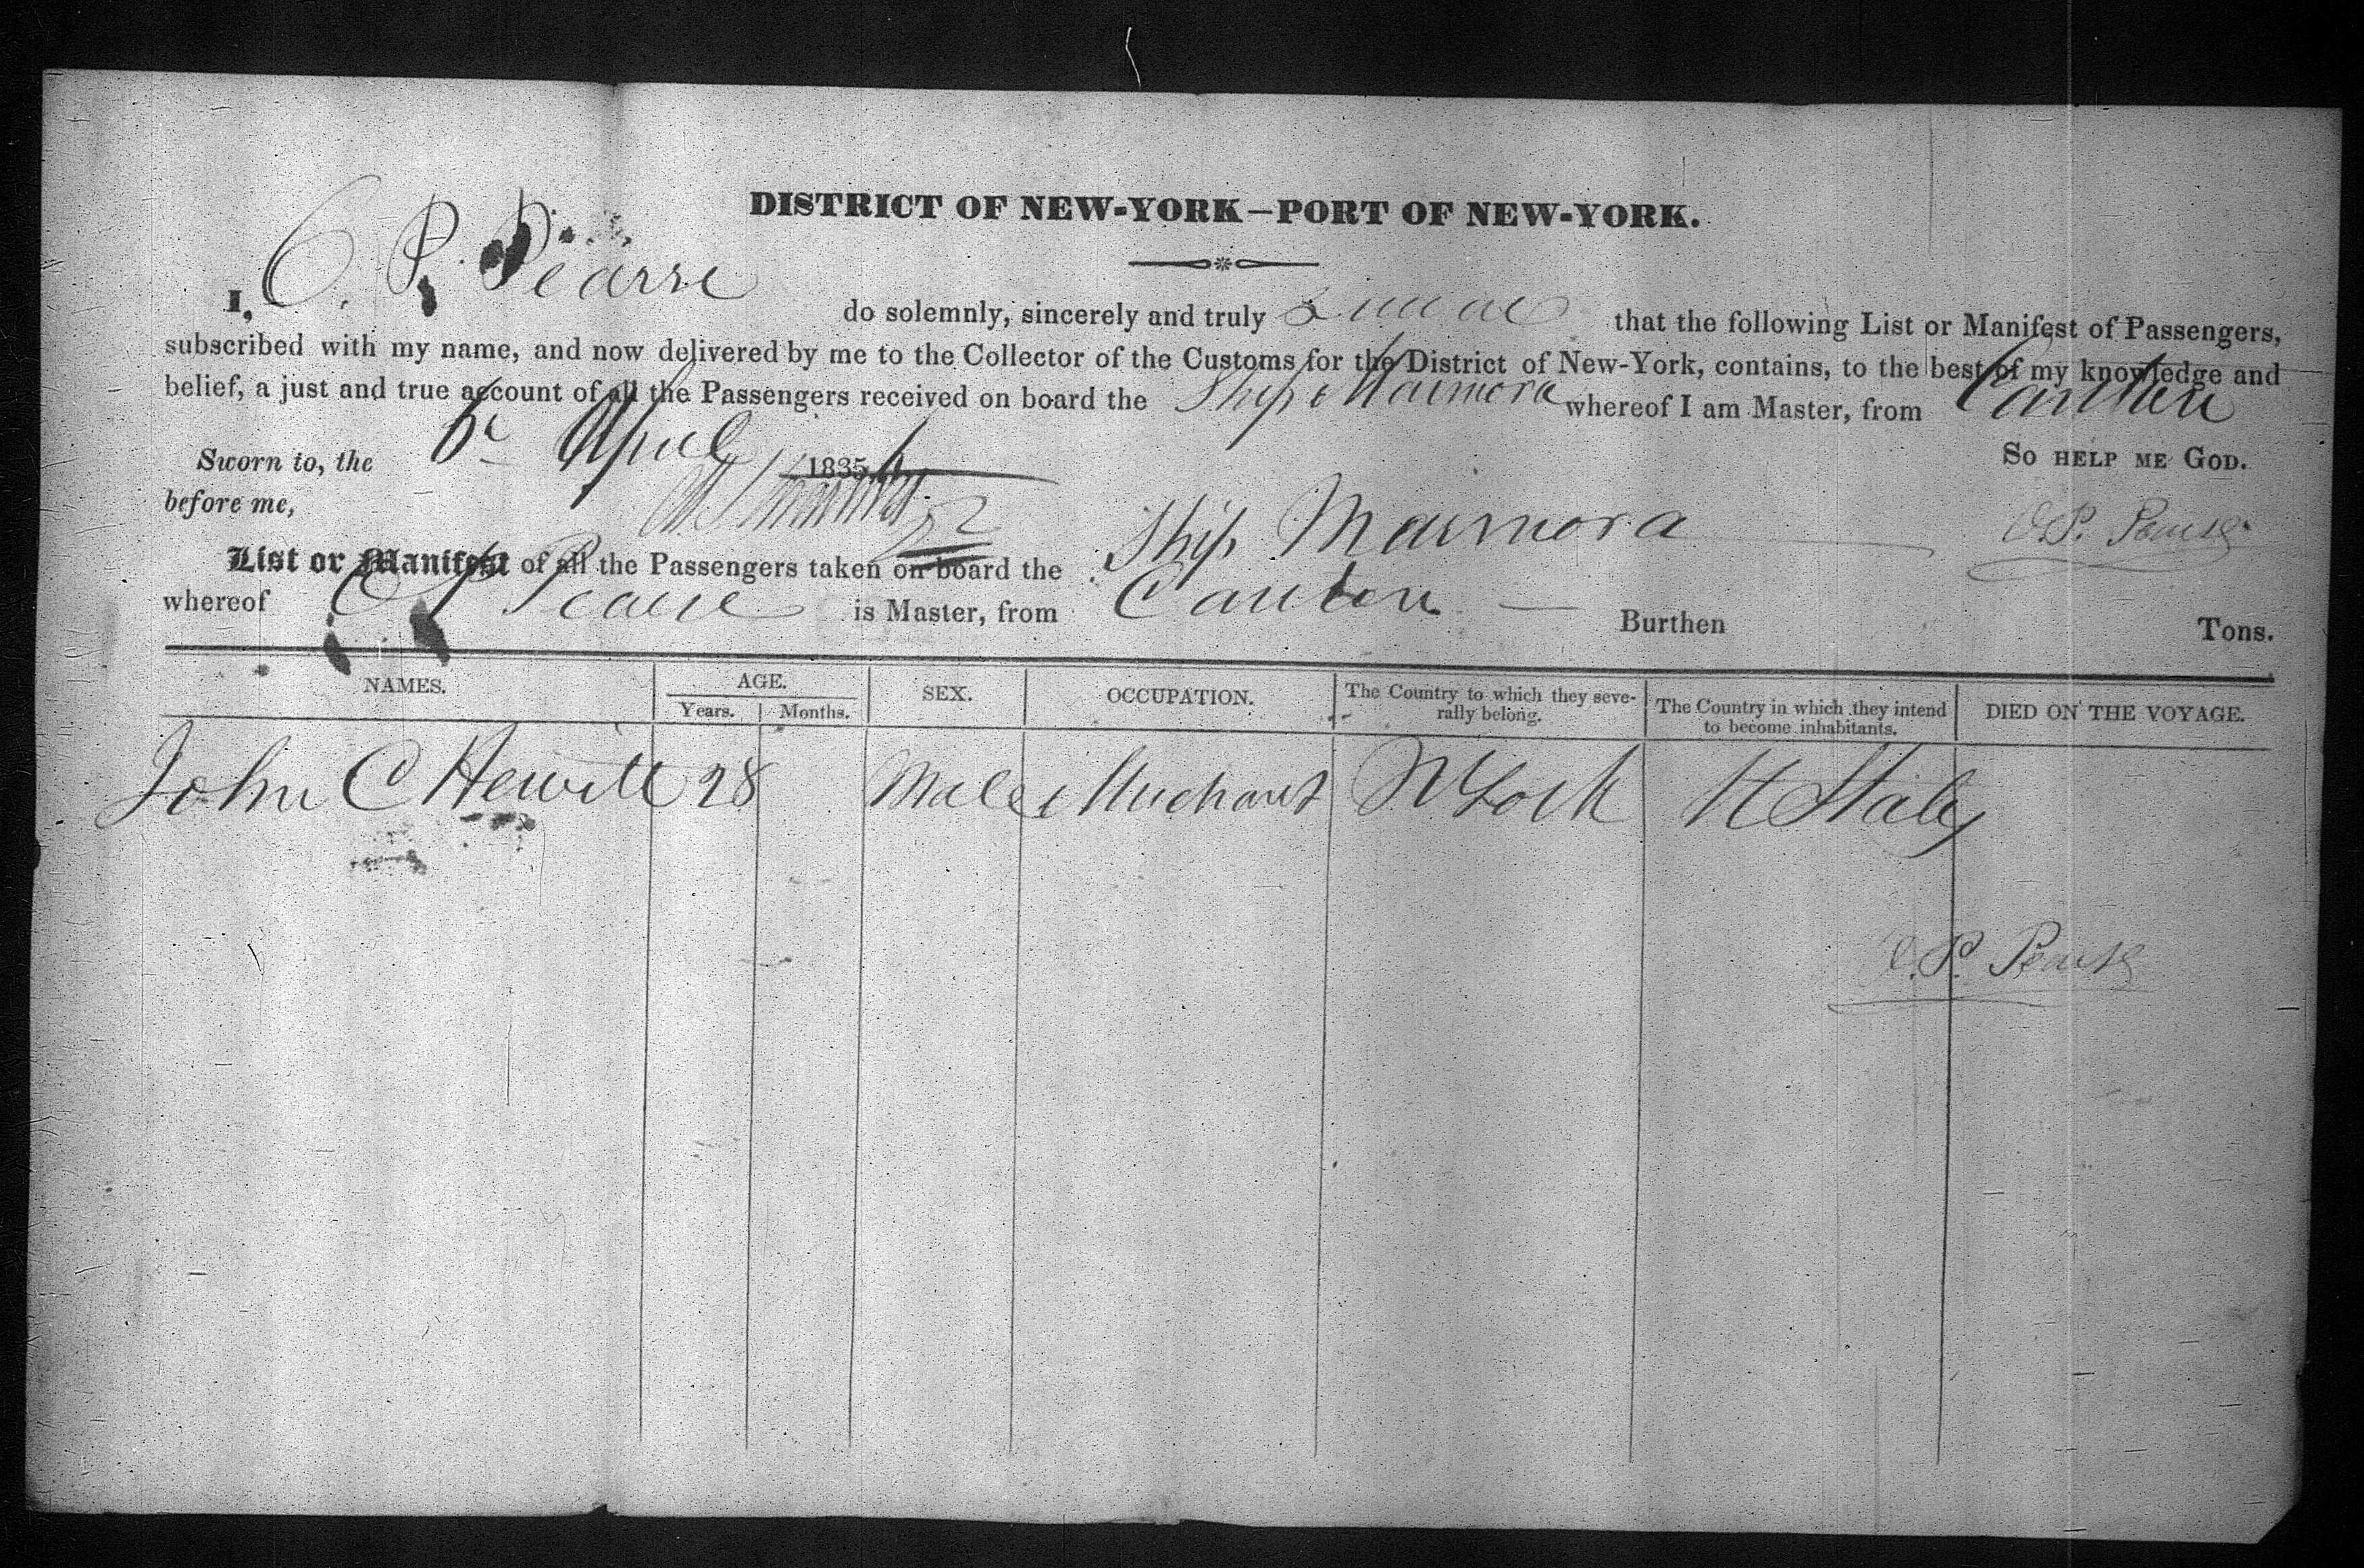 DISTRICT OF NEW-YORK—PORT OF NEW-YORK.
I, O. P. Pearse do solemnly, sincerely and truly swear that the following List or Manifest of Passengers,
subscribed with my name, and now delivered by me to the Collector of the Customs for the District of New-York, contains, to the best of my knowledge and
belief, a just and true account of all the Passengers received on board the Ship Marmora whereof I am Master, from Canton
Sworn to, the 6th April 1835 So HELP ME GOD.
before me,
O.P. Pearse
List or Manifest of all the Passengers taken on board the Ship Marmora
whereof O P Pearse is Master, from Canton — Burthen Tons.
NAMES. AGE. SEX. OCCUPATION. The Country to which they seve-rally belong. The Country in which they intend to become inhabitants. DIED ON THE VOYAGE.
Years. Months.
John C Hewitt 28 Male Merchant N York U States
O.P. Pearse